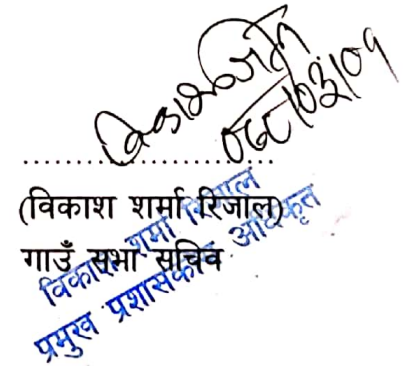 ०७८।०३।०१
.........................
(विकाश शर्मा रिजाल)
गाउँ सभा सचिव
विकाश शर्मा रिजाल
प्रमुख प्रशासकीय अधिकृत